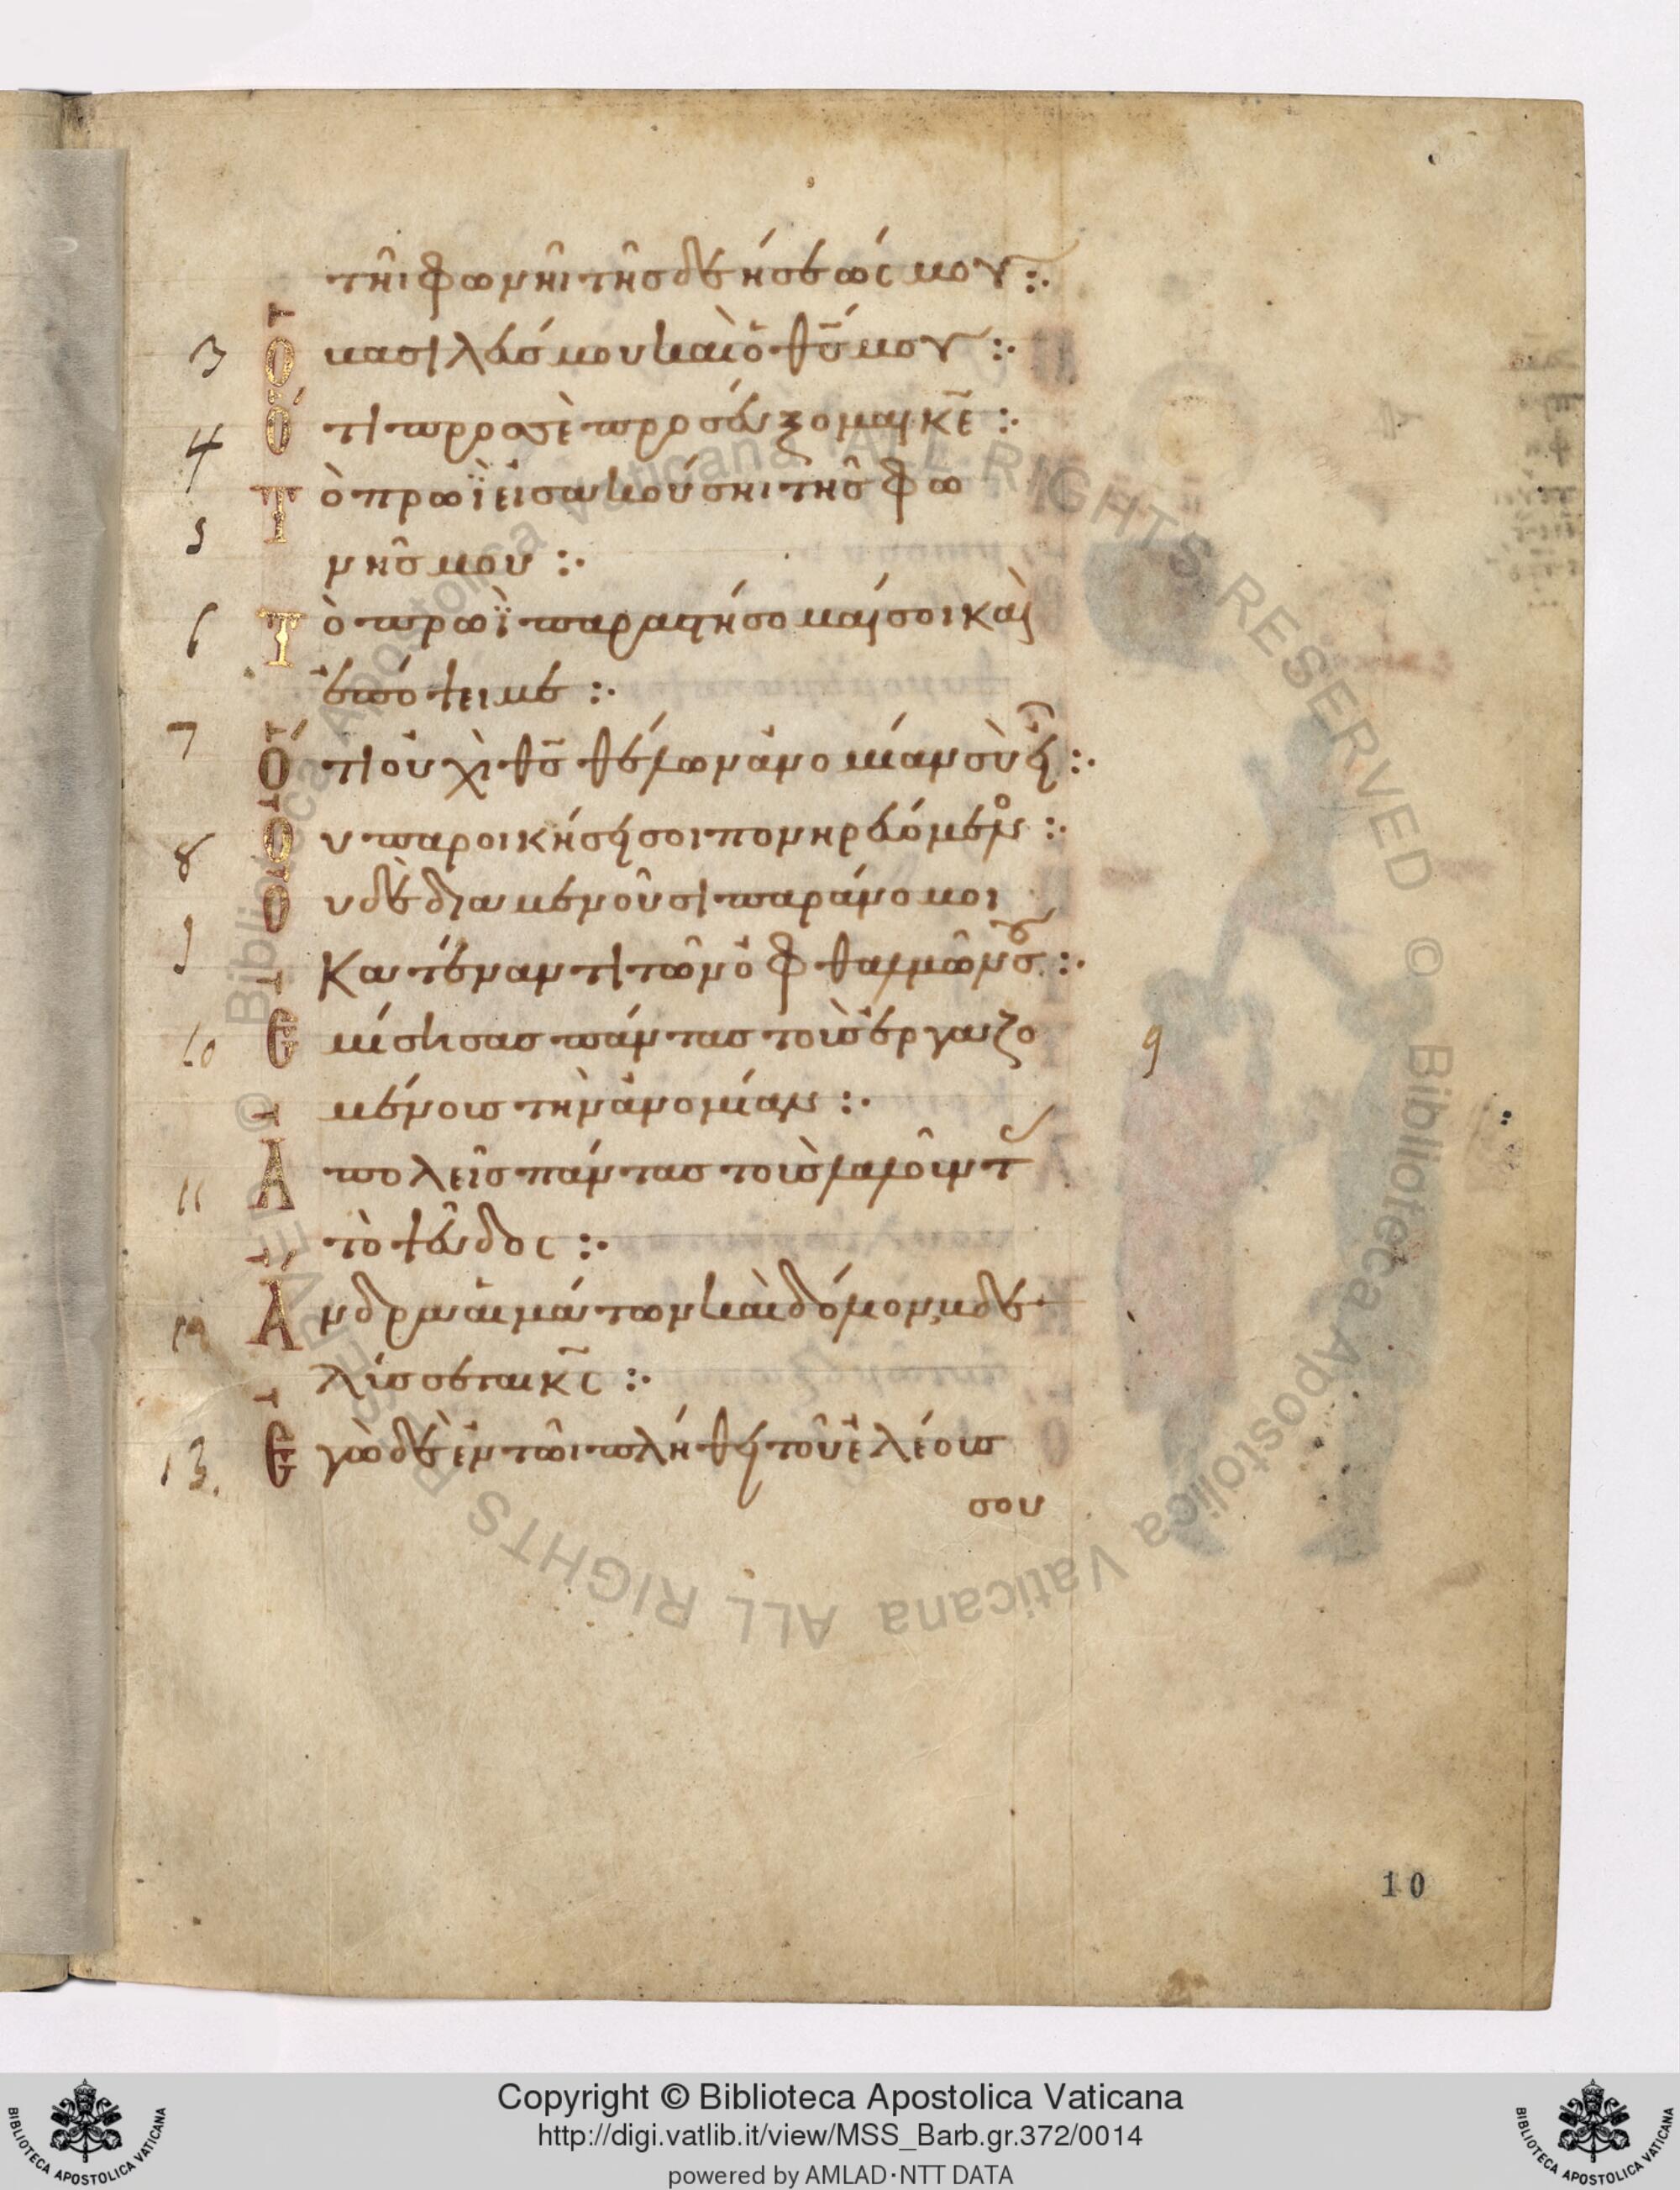 τῆι φωνῆι τῆσ δεήσεώς μου :·
3 Ὁ βασιλεύσ μου καὶ ὁ θ̅σ̅ μου :·
4 Ὅτι προσ σὲ προσεύξομαι κ̅ε̅ :·
5 Τὸ πρωῒ εἰσακούσηι τῆσ φω
νῆσ μου :·
6 Τὸ πρωῒ παραστήσομαί σοι καὶ
ἐπόψει με :·
7 Ὅτι οὐχὶ θ̅σ̅ θέλων ἀνομίαν σὺ εἶ :·
8 Οὐ παροικήσει σοι πονηρευόμενος :·
Οὐδὲ διαμενοῦσι παράνομοι
9 κατέναντι τῶν ὀφθαλμῶν σου :·
10 Ἐμίσησασ πάντασ τοὺσ ἐργαζο
μένουσ τὴν ἀνομίαν :·
11 Ἀπολεῖσ πάντασ τοὺσ λαλοῦντ
τὸ ψεῦδος :·
12 Ἄνδρα αἱμάτων καὶ δόλιον βδε
λύσσεται κ̅ς̅ :·
13. Ἐγὼ δὲ ἐν τῶι πλήθει τοῦ ἐλέουσ
σου
9
10
© Biblioteca Apostolica Vaticana ALL RIGHTS RESERVED © Biblioteca Apostolica Vaticana ALL RIGHTS RESERVED
BIBLIOTECA APOSTOLICA VATICANA
Copyright © Biblioteca Apostolica Vaticana
http://digi.vatlib.it/view/MSS_Barb.gr.372/0014
powered by AMLAD·NTT DATA
BIBLIOTECA APOSTOLICA VATICANA